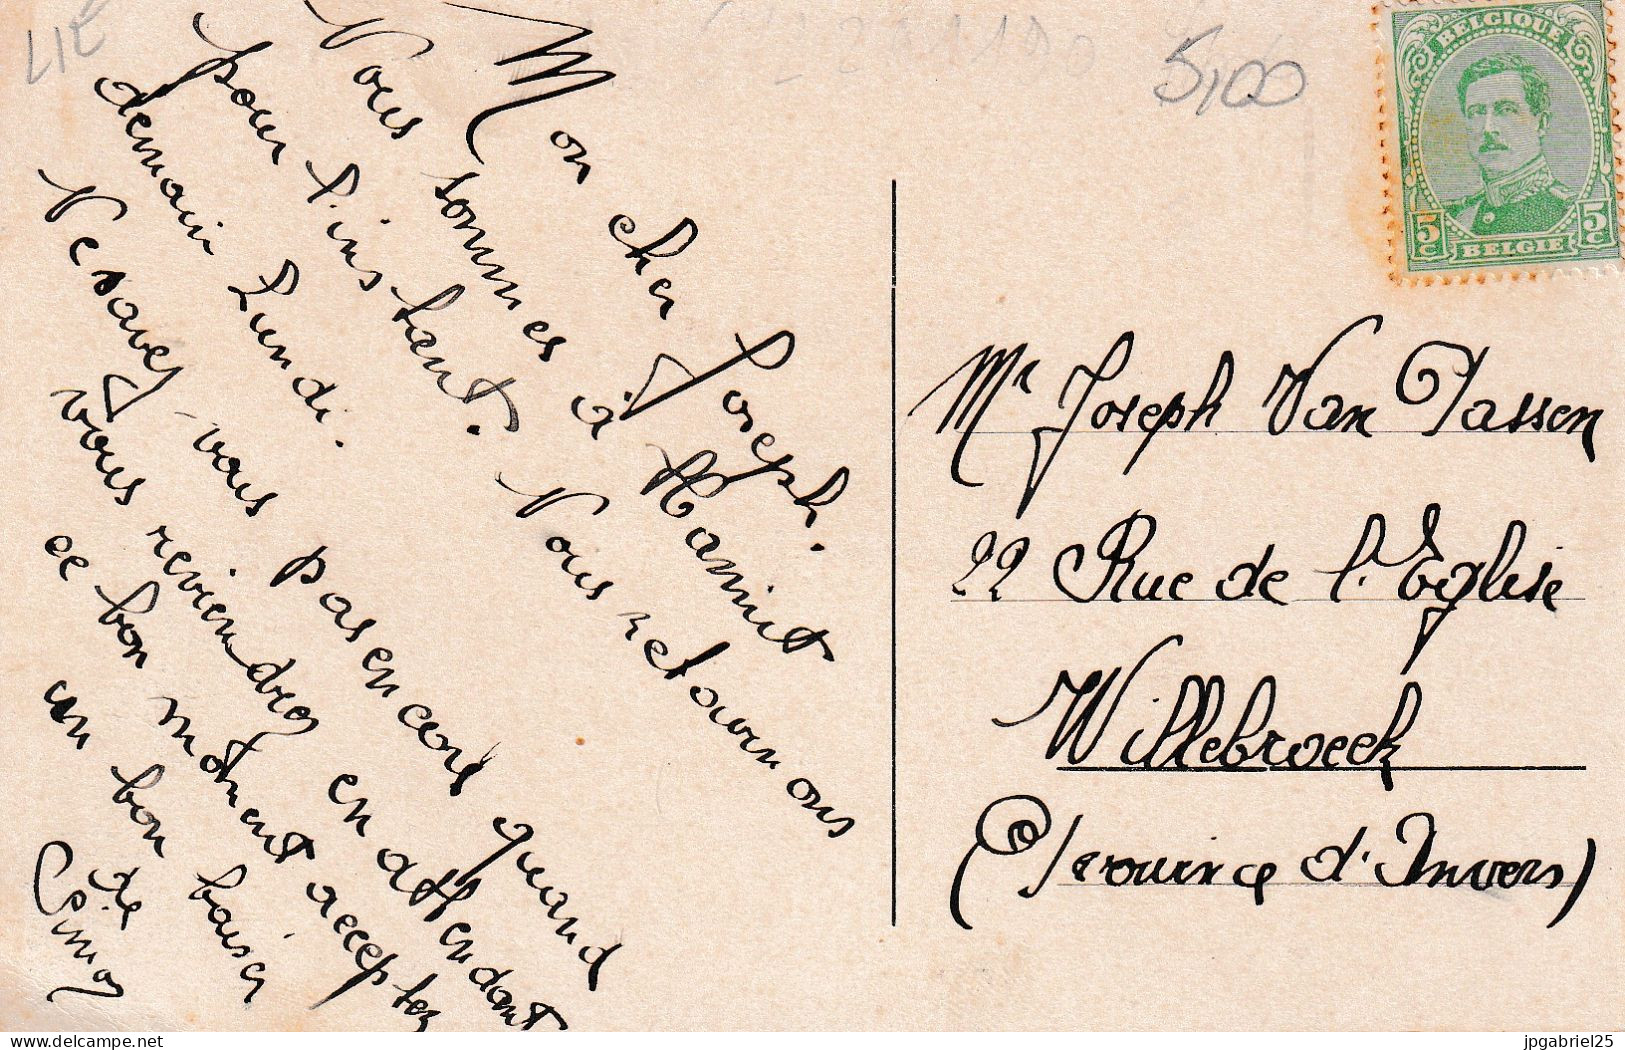 LIE
5,00
BELGIQUE
5c 5c
BELGIË
Mon cher Joseph.
Nous sommes à Hamut
pour l'instant. Nous retournons
demain Lundi.
Ne savez-vous pas encore quand
vous reviendrez en attendant
ce bon moment acceptez
un bon baiser
de
Mr Joseph Van Tassen
22 Rue de l'Eglise
Willebroeck
(Province d'Anvers)
delcampe.net
jpgabriel25